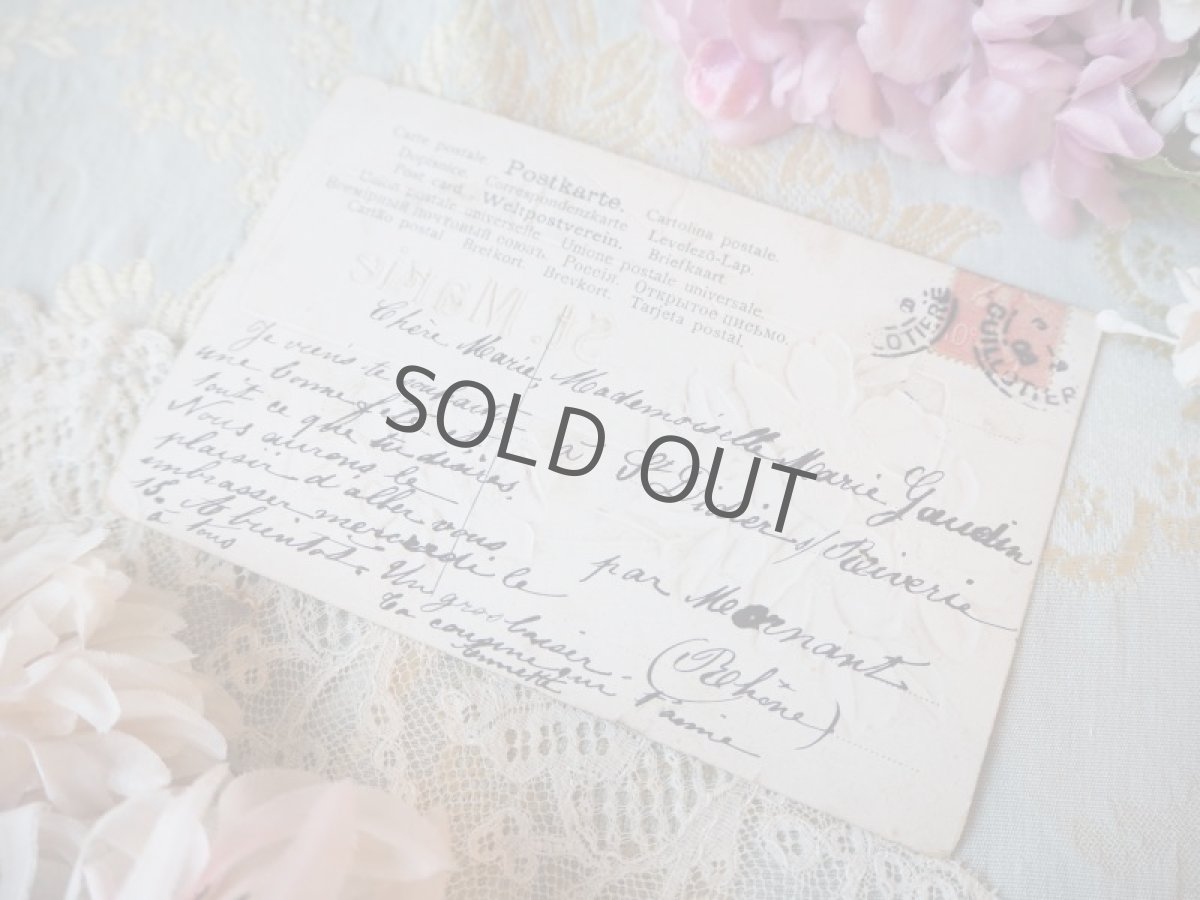 Carte postale. Postkarte. Cartolina postale.
Dopisnice. Correspondenzkarte Levelező-Lap.
Post card. Weltpostverein. Briefkaart
Union postale universelle Unione postale universale.
Всемірный почтовый союзъ. Россія. Открытое письмо.
Cartão postal Brefkort. Brevkort. Tarjeta postal.
Ste. Marie
Chère Marie,
Je viens te souhaiter
une bonne fête et
tout ce que tu désires.
Nous aurons le
plaisir d'aller vous
embrasser mercredi le
15. A bientôt. Un gros baiser
à tous
Ta cousine qui t'aime
Annette
Mademoiselle Marie Gaudin
à St Didier s/ Riverie
par Mornant.
(Rhône)
SOLD OUT